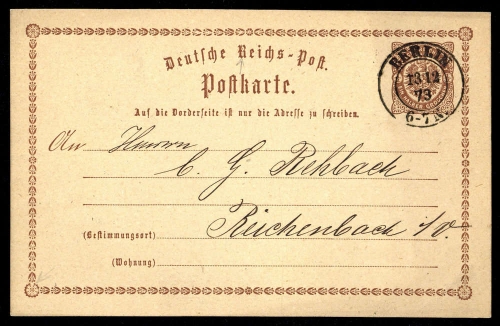 Deutsche Reichs-Post.
Postkarte.
BERLIN
13 12
73
6-7 N.
Auf die Vorderseite ist nur die Adresse zu schreiben.
An Herrn
C. G. Rehbach
(Bestimmungsort) Reichenbach i/V.
(Wohnung)